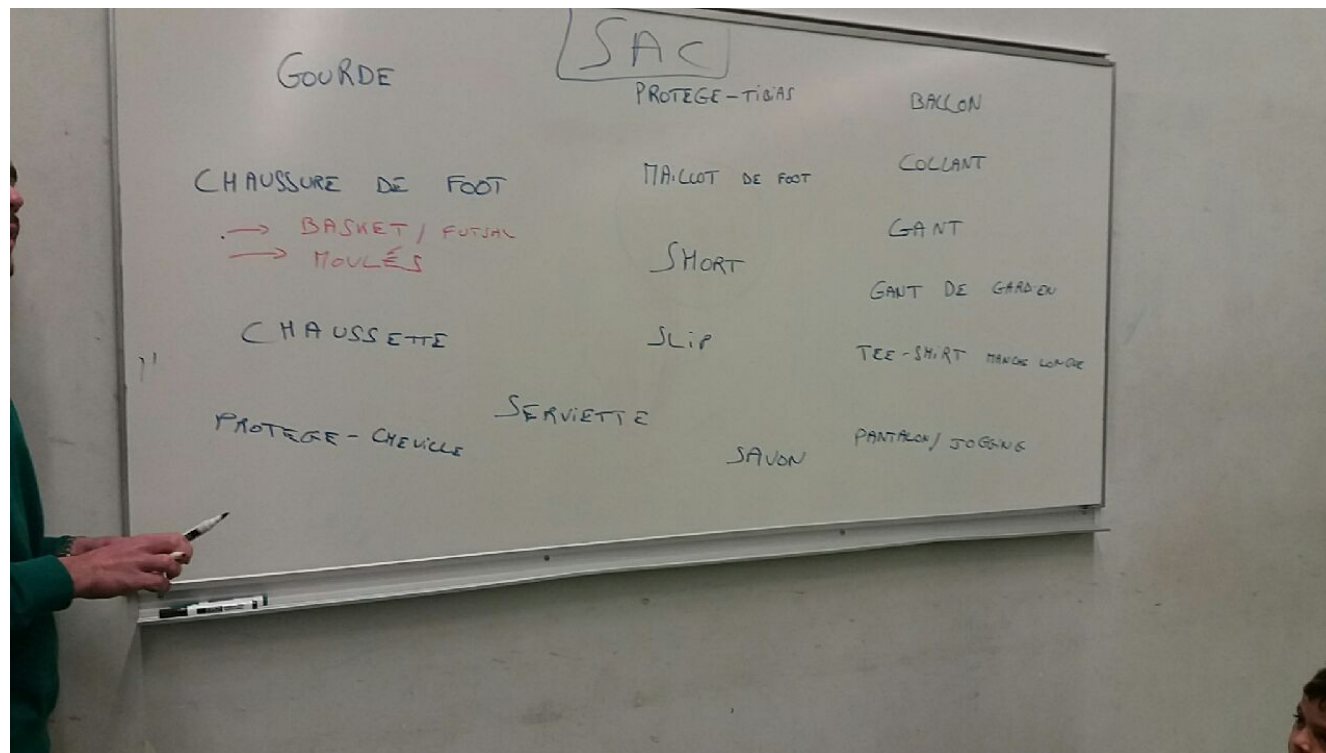 SAC
GOURDE
CHAUSSURE DE FOOT
→ BASKET / FUTSAL
→ MOULÉS
CHAUSSETTE
PROTEGE-CHEVILLE
SERVIETTE
PROTEGE-TIBIAS
MAILLOT DE FOOT
SHORT
SLIP
SAVON
BALLON
COLLANT
GANT
GANT DE GARDIEN
TEE-SHIRT MANCHE LONGUE
PANTALON / JOGGING